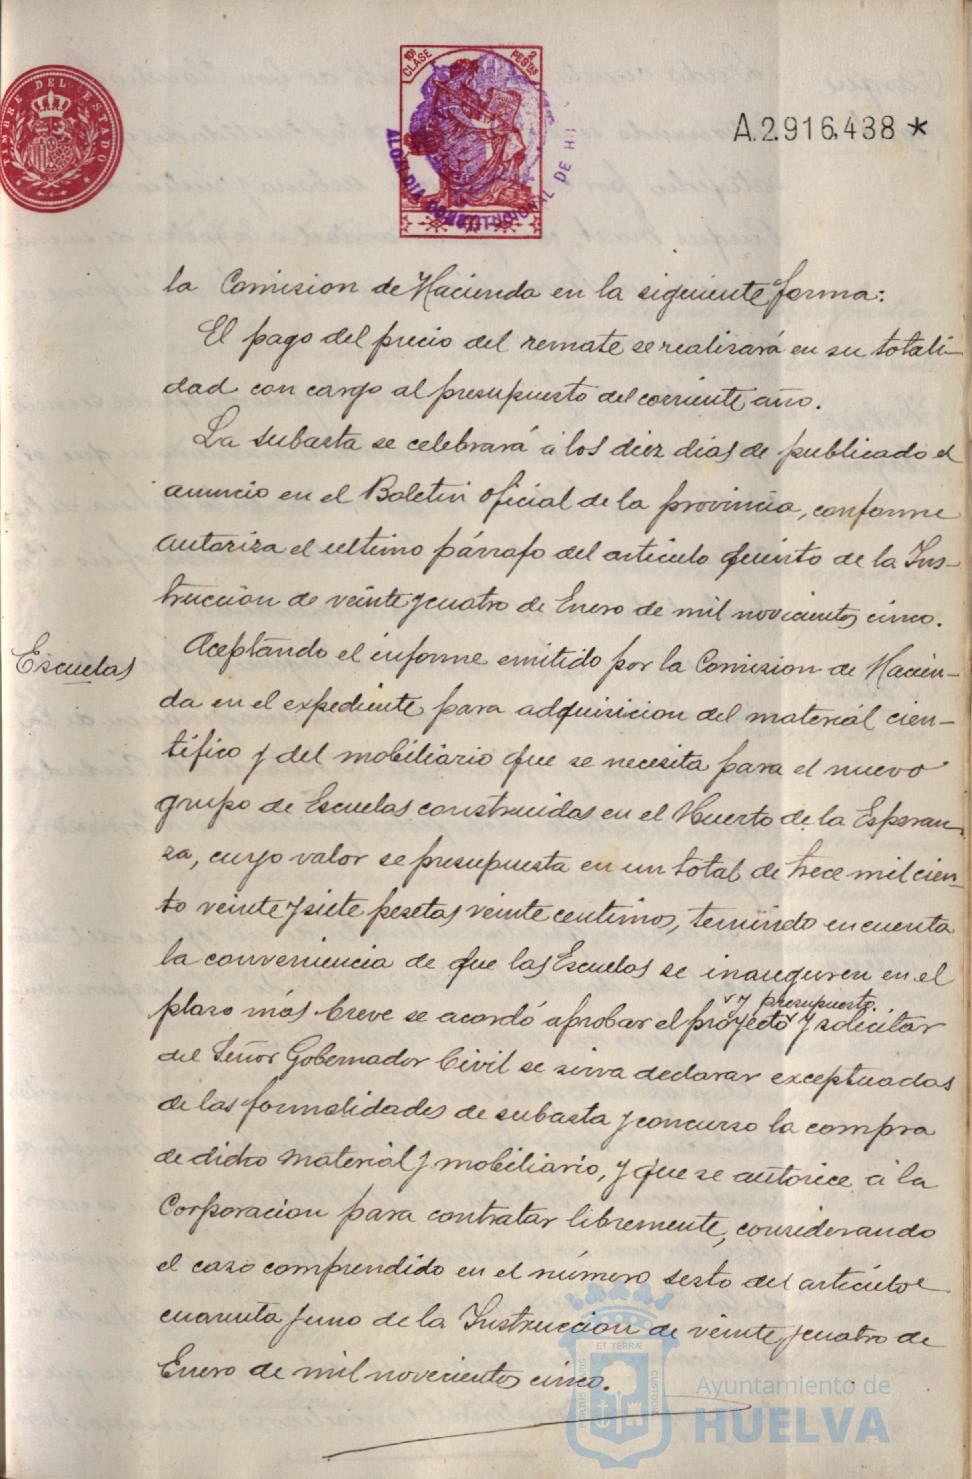 TIMBRE DEL ESTADO
10ª CLASE
2 PESTAS
ALCALDIA CONSTITUCIONAL DE H
A.2.916.438 *
la Comision de Hacienda en la siguiente forma:
El pago del precio del remate se realizará en su totali-
dad con cargo al presupuesto del corriente año.
La subasta se celebrará á los diez dias de publicado el
anuncio en el Boletin oficial de la provincia, conforme
autoriza el ultimo párrafo del articulo quinto de la Ins-
trucción de veinte y cuatro de Enero de mil novecientos cinco.
Escuelas
Aceptando el informe emitido por la Comision de Hacien-
da en el expediente para adquisicion del material cien-
tífico y del mobiliario que se necesita para el nuevo
grupo de Escuelas construidas en el Huerto de la Esperan-
za, cuyo valor se presupuesta en un total de trece mil cien-
to veinte y siete pesetas veinte centimos, teniendo en cuenta
la conveniencia de que las Escuelas se inauguren en el
y presupuesto
plazo más breve se acordó aprobar el proyecto y solicitar
del Señor Gobernador Civil se sirva declarar exceptuadas
de las formalidades de subasta y concurso la compra
de dicho material y mobiliario, y que se autorice á la
Corporacion para contratar libremente, considerando
el caso comprendido en el número sesto del articulo
cuarenta y uno de la Instruccion de veinte y cuatro de
Enero de mil novecientos cinco.
ET TERRÆ
CUSTODIA
Ayuntamiento de
HUELVA